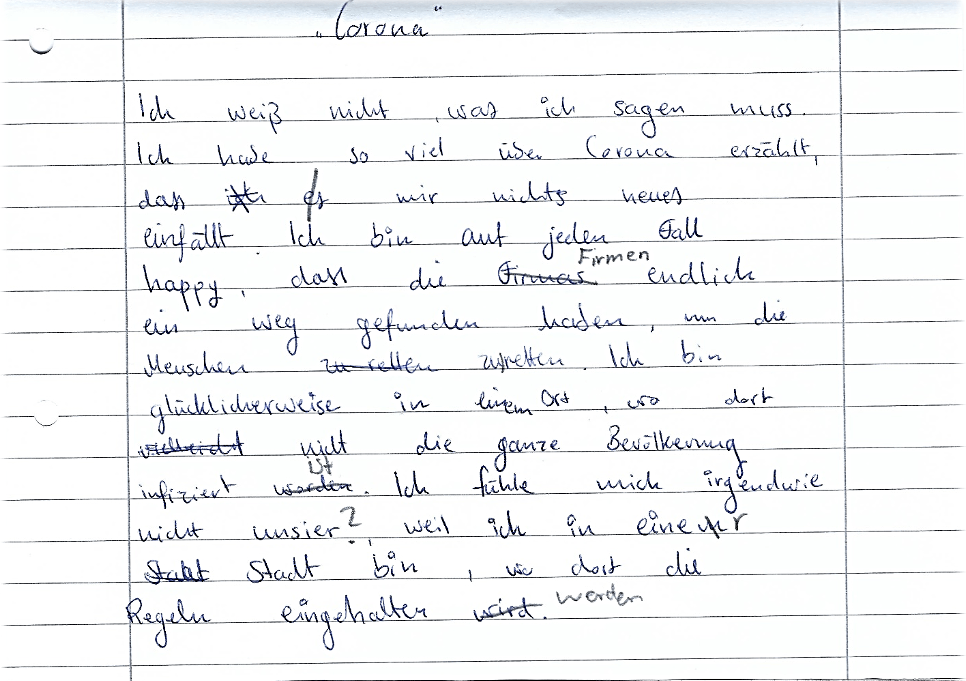 „Corona“
Ich weiß nicht, was ich sagen muss.
Ich habe so viel über Corona erzählt,
dass es mir nichts neues
einfällt. Ich bin auf jeden Fall
happy, dass die Firmas Firmen endlich
ein weg gefunden haben, um die
Menschen zu retten zuretten. Ich bin
glücklicherweise in einem Ort, wo dort
vielleicht nicht die ganze Bevölkerung
infiziert worden ist. Ich fühle mich irgendwie
nicht unsier?, weil ich in einer
Stadt Stadt bin, wo dort die
Regeln eingehalten wird. werden